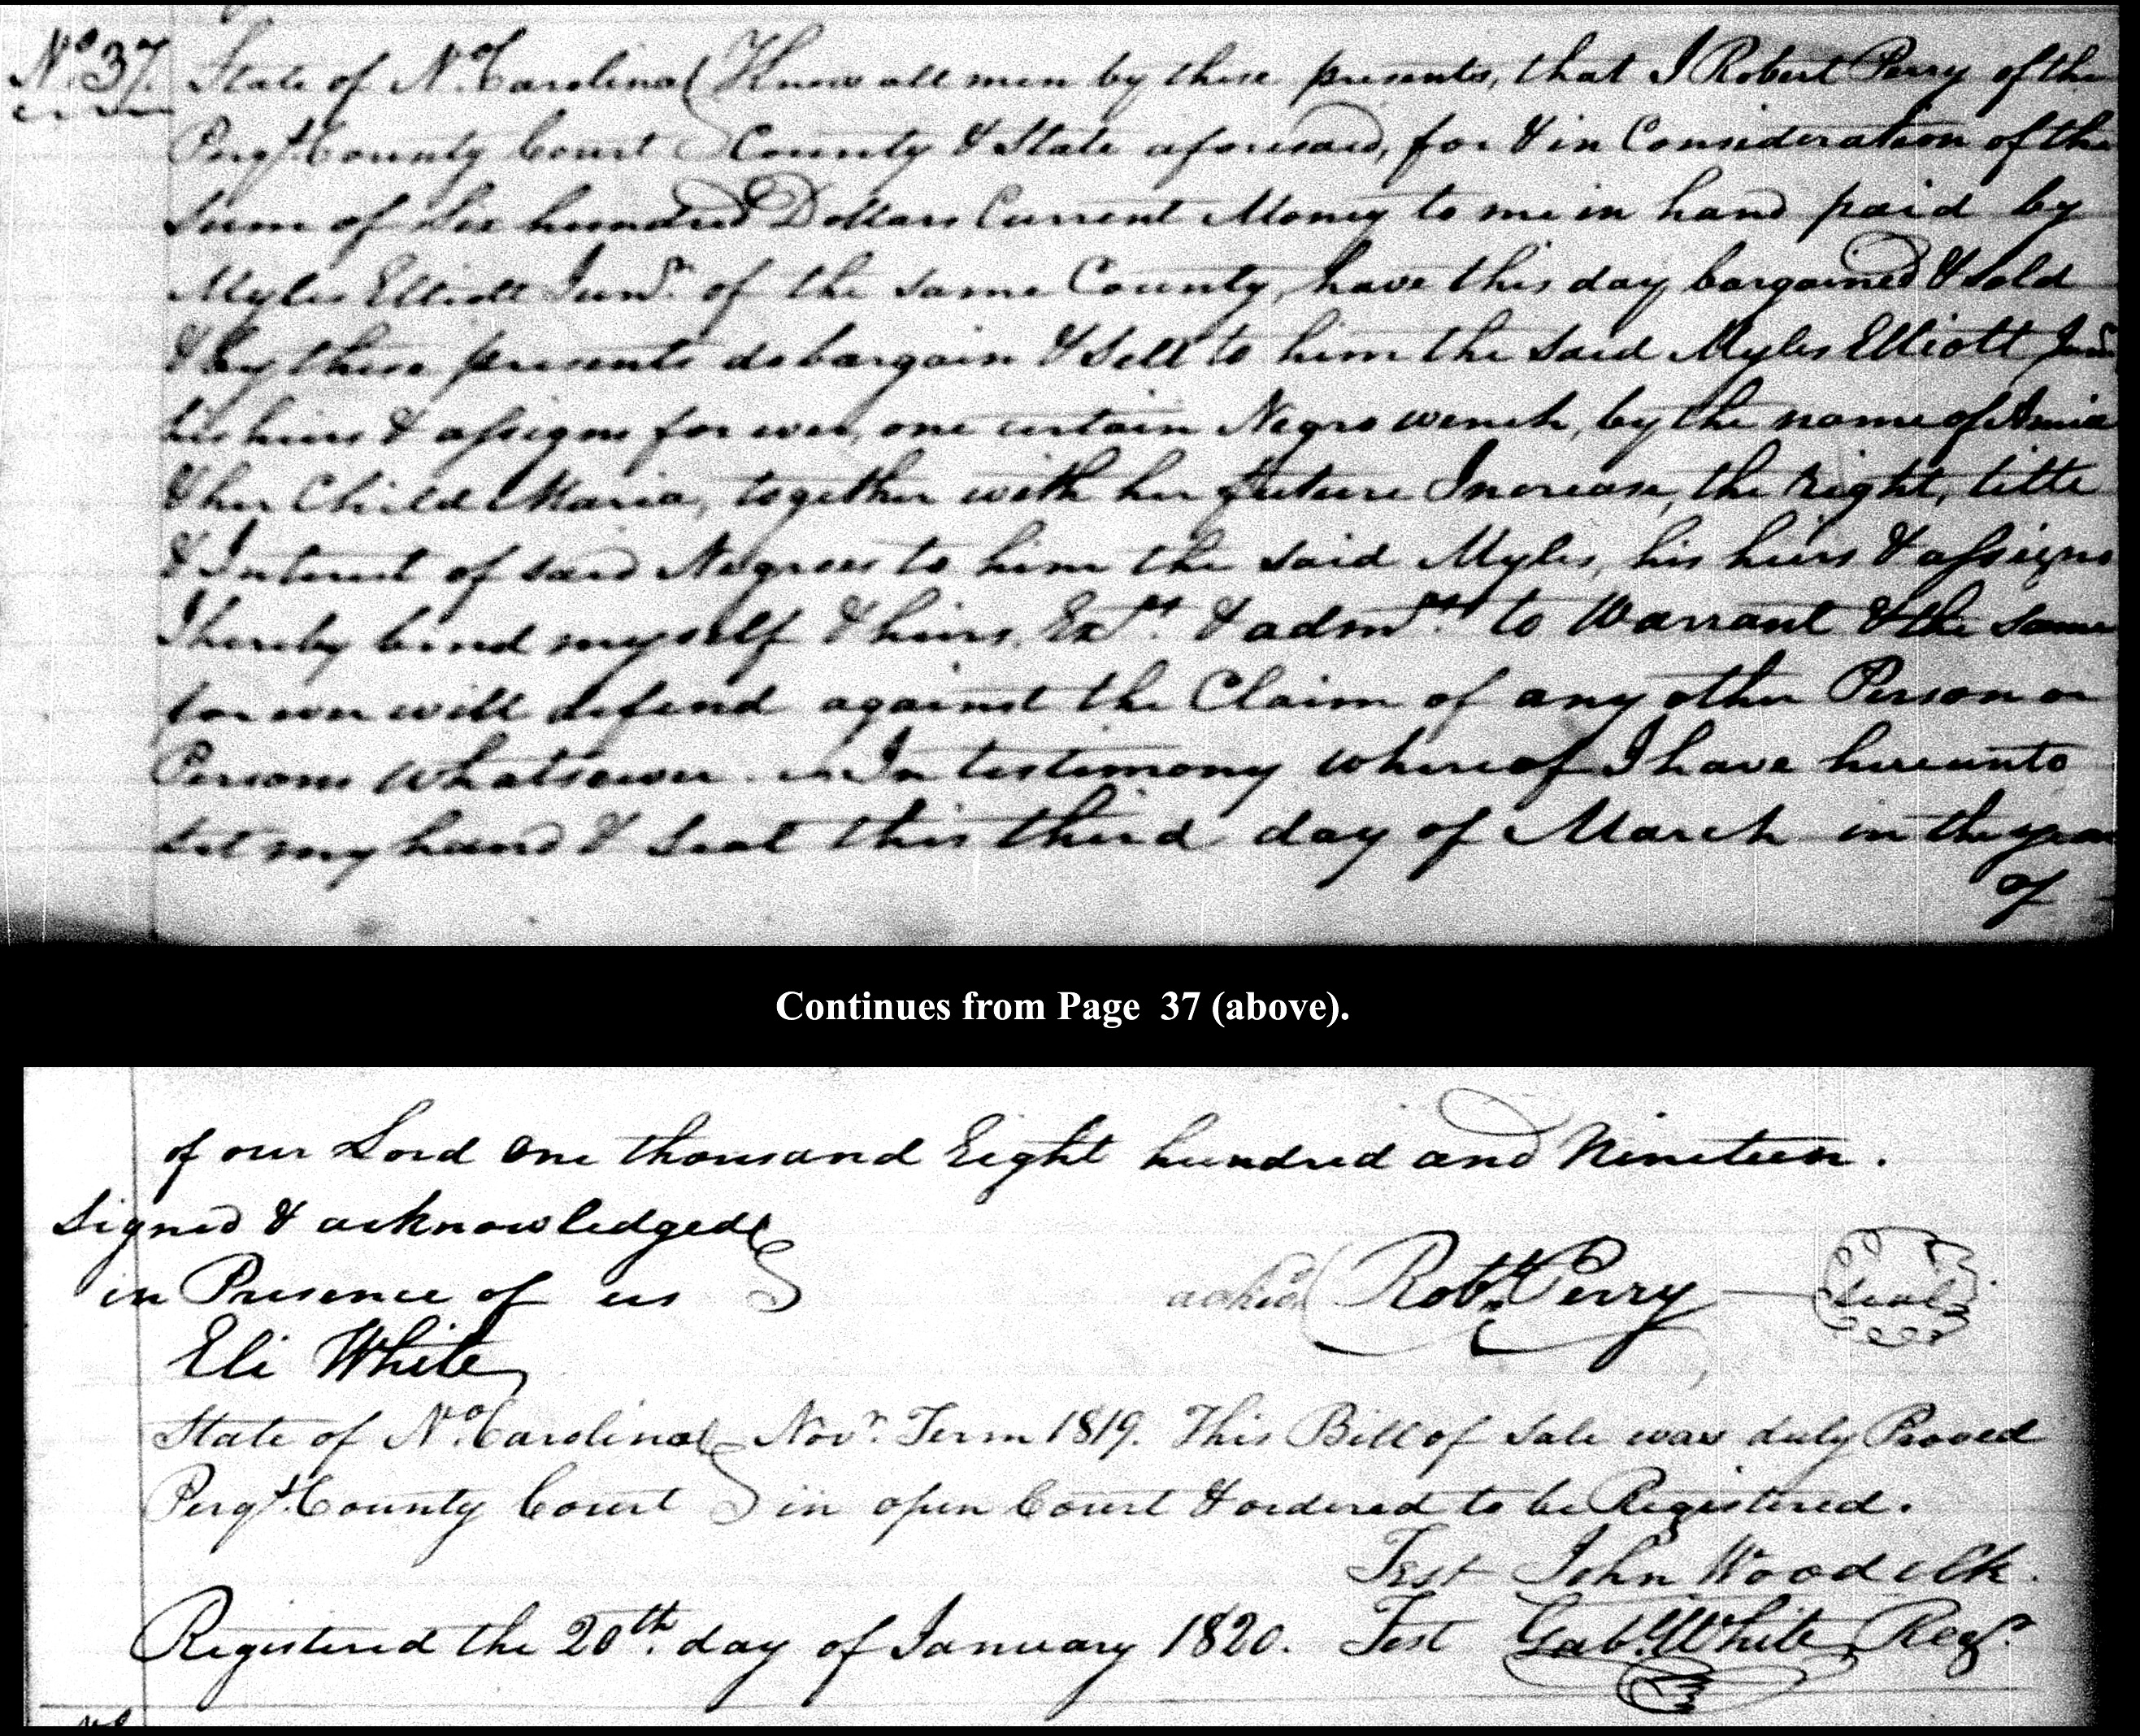 No. 37. State of No. Carolina Know all men by these presents, that I Robert Perry of the
Perqs. County Court County & State aforesaid, for & in Consideration of the
Sum of Six hundred Dollars Current Money to me in hand paid by
Myles Elliott Junr. of the same County, have this day bargained & sold
& by these presents do bargain & Sell to him the said Myles Elliott Junr
his heirs & assigns for ever, one certain Negro wench, by the name of Amia
& her Child Maria, together with her future Increase, the Right, title
& Interest of said Negroes to him the said Myles, his heirs & assigns
I hereby bind myself & heirs, Exrs. & admrs. to Warrant & the same
for ever will defend against the Claim of any other Person or
Persons whatsoever. In testimony whereof I have hereunto
set my hand & Seal this third day of March in the year
of
Continues from Page 37 (above).
of our Lord One thousand Eight hundred and Nineteen.
Signed & acknowledged
in Presence of us Robt. Perry Seal
Eli White
State of No. Carolina Novr. Term 1819. This Bill of Sale was duly Proved
Perqs. County Court in open Court & ordered to be Registered.
Test John Wood Clk.
Registered the 20th. day of January 1820. Test Gabl. White Regr.